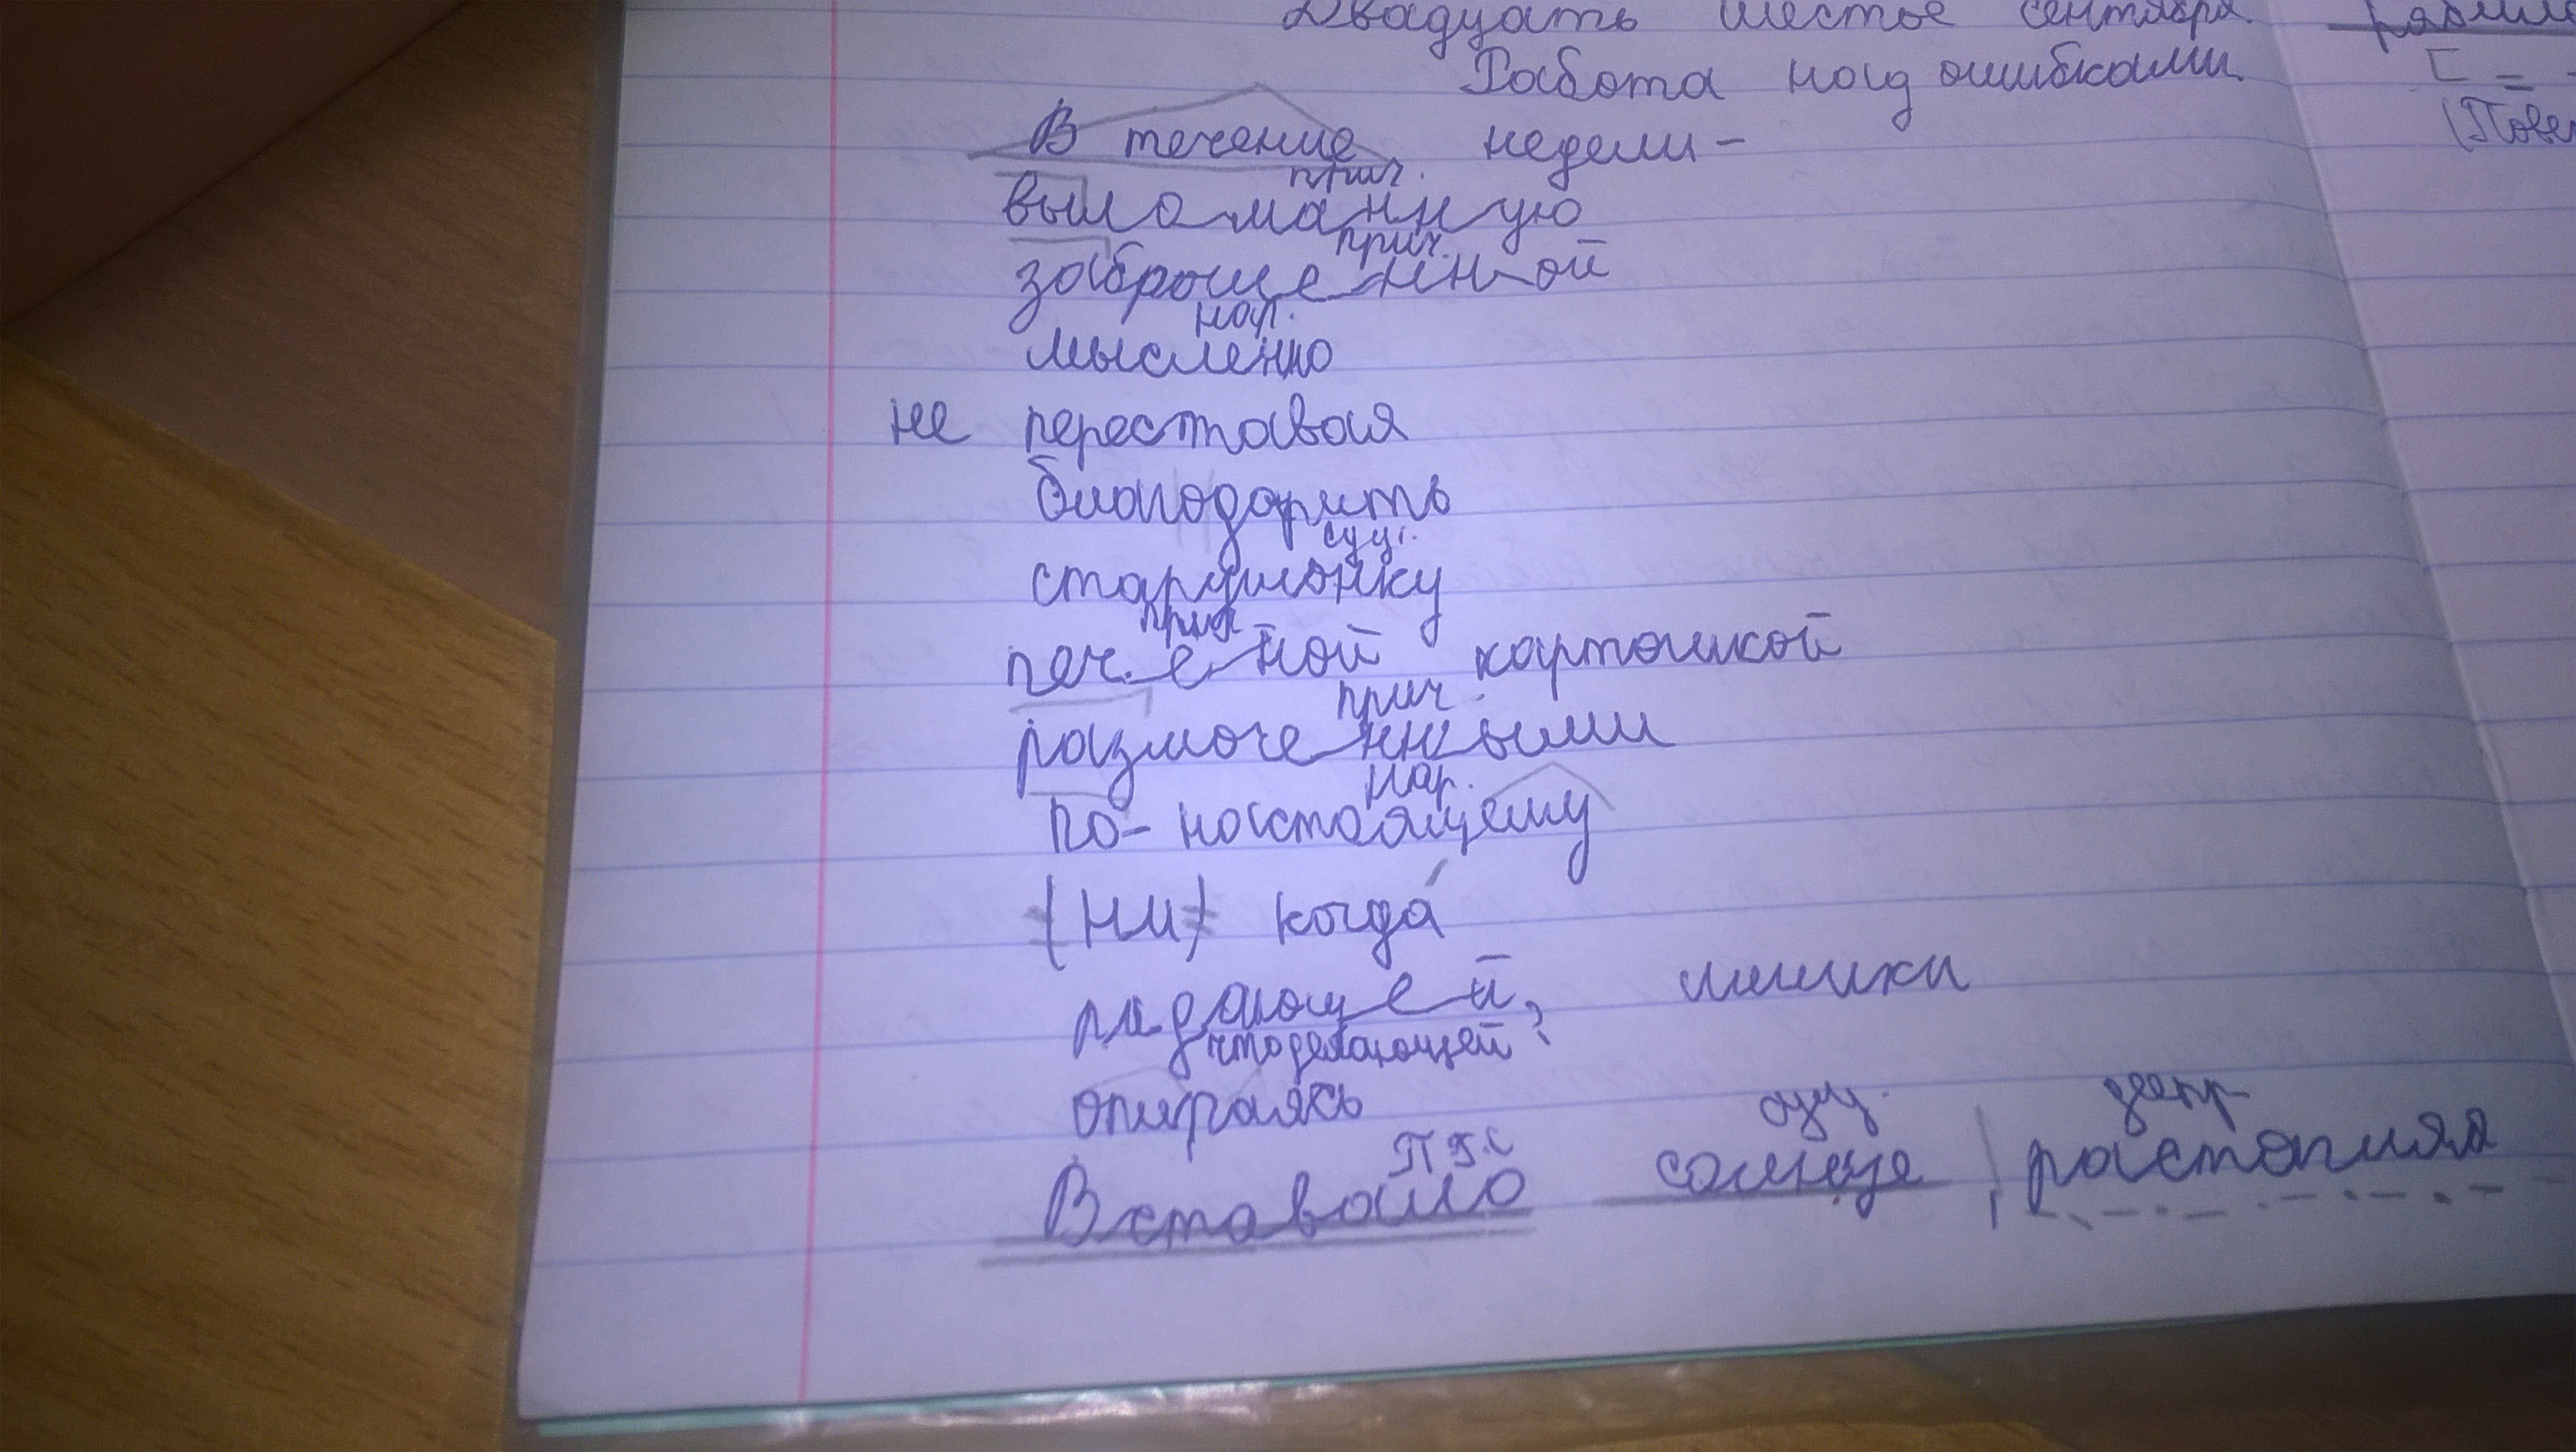 Двадцать шестое сентября.
Работа над ошибками.
В течение недели -
прич.
выломанную
прич.
заброшенной
нар.
мысленно
не переставая
благодарить
сущ.
старушонку
прил
печеной картошкой
прич.
размоченными
нар.
по-настоящему
(ни) когда
рыдающей,
что делающей?
опираясь
П.Г.С сущ. деепр
Вставало солнце, растопляя
[ =
(Пове